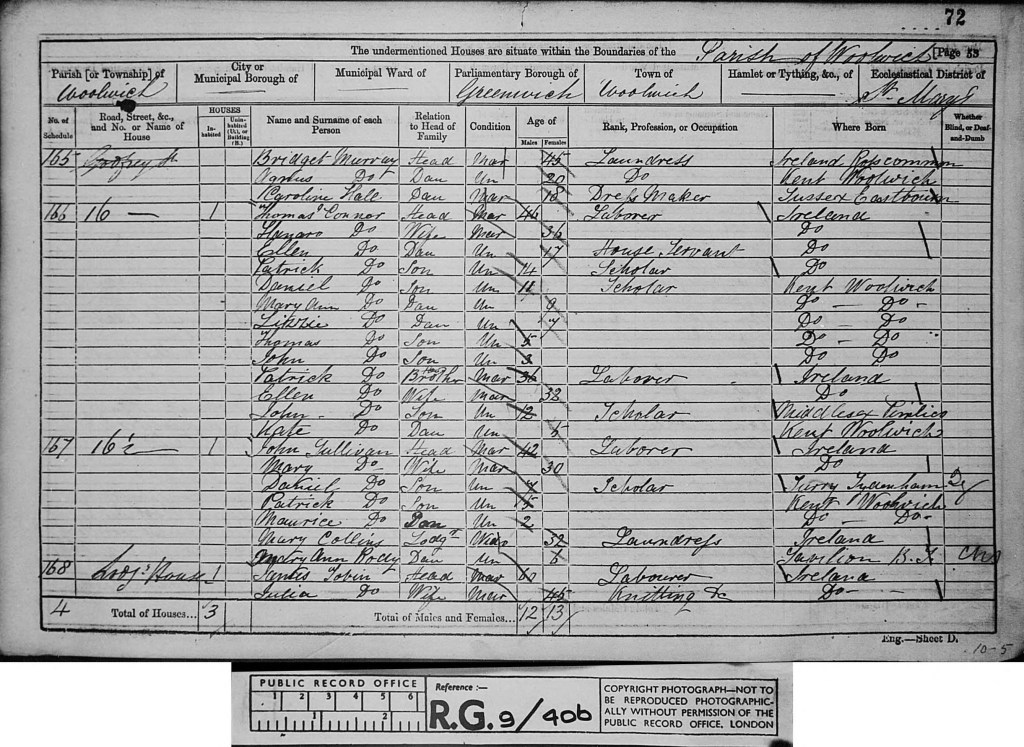 72
The undermentioned Houses are situate within the Boundaries of the Parish of Woolwich [Page 53
Parish [or Township] of Woolwich
City or Municipal Borough of
Municipal Ward of
Parliamentary Borough of Greenwich
Town of Woolwich
Hamlet or Tything, &c., of
Ecclesiastical District of St Mary's
No. of Schedule
Road, Street, &c., and No. or Name of House
HOUSES
Inhabited
Uninhabited (U.), or Building (B.)
Name and Surname of each Person
Relation to Head of Family
Condition
Age of
Males
Females
Rank, Profession, or Occupation
Where Born
Whether Blind, or Deaf-and-Dumb
165 Godfrey St Bridget Murray Head Mar 45 Laundress Ireland Roscommon
Do Dau Un 20 Do Kent Woolwich
Karoline Hale Dau Mar 18 Dress Maker Sussex Eastbourn
166 16 — 1 Thomas Connor Head Mar 46 Laborer Ireland
Do Wife Mar 36 Do
Ellen Do Dau Un 17 House Servant Do
Patrick Do Son Un 14 Scholar Do
Daniel Do Son Un 11 Scholar Kent Woolwich
Mary Ann Do Dau Un 9 Do — Do -
Lizzie Do Dau Un 7 Do - Do
Thomas Do Son Un 5 Do - Do
John Do Son Un 3 Do Do
Patrick Do Brother Mar 36 Laborer Ireland
Ellen Do Wife Mar 32 Do
John - Do Son Un 12 Scholar Middlesex Pimlico
Kate Do Dau Un 5 Kent Woolwich
167 16½ 1 John Sullivan Head Mar 42 Laborer Ireland
Mary Do Wife Mar 30 Do
Daniel Do Son Un 7 Scholar Surry
Patrick Do Son Un 5 Kent Woolwich
Maurice Do Un 2 Do - Do-
Mary Collins Lodgr Wido 32 Laundress Ireland
Mary Ann Dau Un 6
168 House 1 Tobin Head Mar 60 Labourer Ireland
Julia Do Wife Mar 45 Knitting &c Do
4 Total of Houses... 3 Total of Males and Females... 12 13
Eng.—Sheet D.
10-5
PUBLIC RECORD OFFICE
1 2 3 4 5 6
1 2
Reference :—
R.G. 9/406
COPYRIGHT PHOTOGRAPH—NOT TO
BE REPRODUCED PHOTOGRAPHIC-
ALLY WITHOUT PERMISSION OF THE
PUBLIC RECORD OFFICE, LONDON